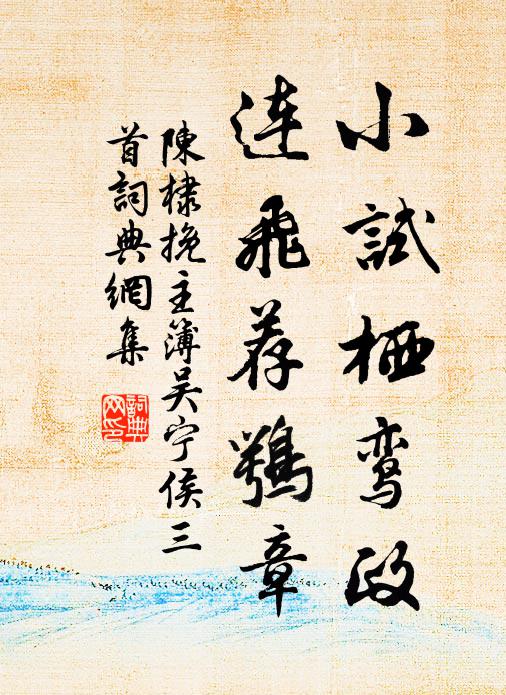 小試栖鸾政
连飛荐鶚章
陳棣挽主簿吴宁侯三
首詞典網集
詞典
网印